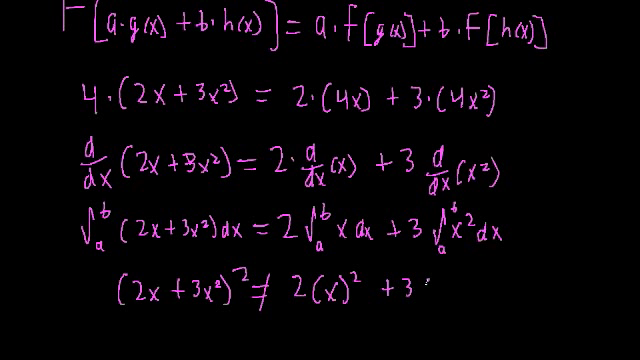 F[a·g(x) + b·h(x)] = a·f[g(x)] + b·F[h(x)]
4·(2x + 3x²) = 2·(4x) + 3·(4x²)
d/dx (2x + 3x²) = 2·d/dx(x) + 3 d/dx(x²)
∫ₐᵇ (2x + 3x²)dx = 2∫ₐᵇ x dx + 3∫ₐᵇ x² dx
(2x + 3x²)² ≠ 2(x)² + 3